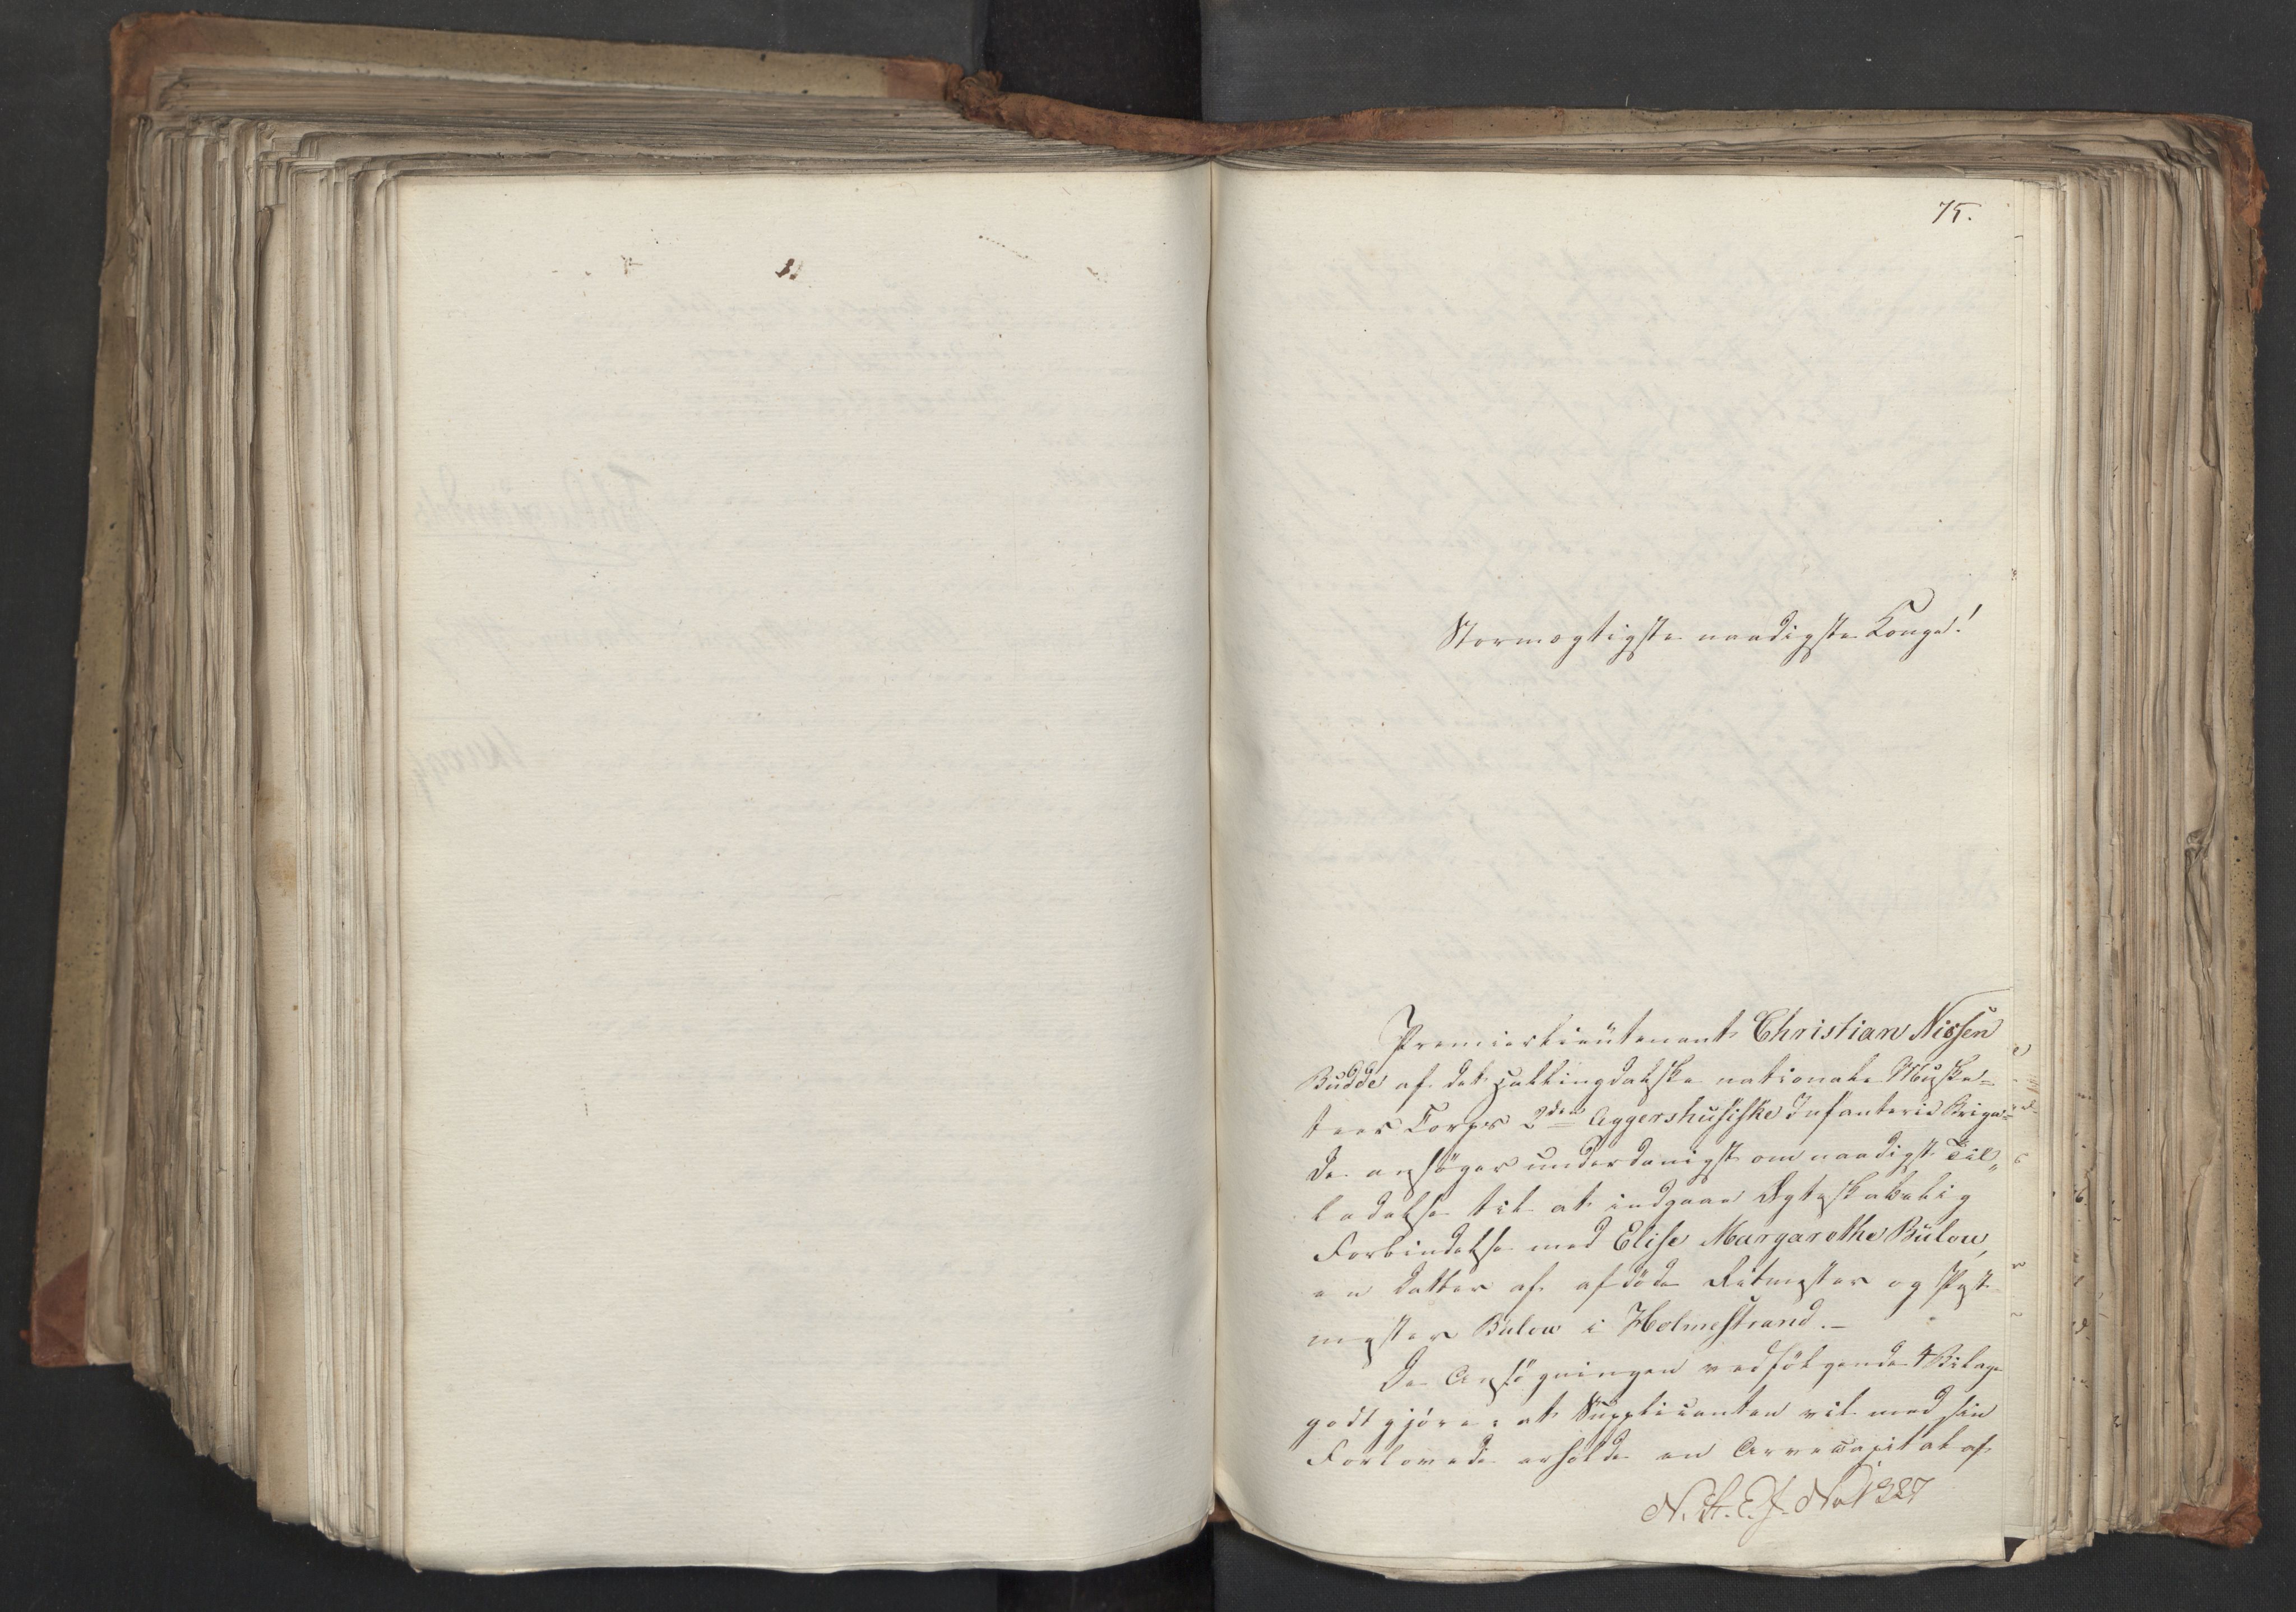 75.
Stormægtigste naadigste Konge!
Premierlieutenant Christian Nissen
Budde af det Hallingdalske nationale Muske=
teer Corps 2den Aggershusiske Infanterie Briga=
de ansøger underdanigst om naadigst Til„
ladelse til at indgaae Egteskabelig
Forbindelse med Elise Margarethe Bülow,
en Datter af afdøde Ritmester og Post
mester Bülow i Holmestrand.—
De Ansøgningen vedfølgende 4 Bilage
godtgjøre: at Supplicanten vil med sin
Forlovede erholde en Arvecapital af
N. A. E. J. No 1327